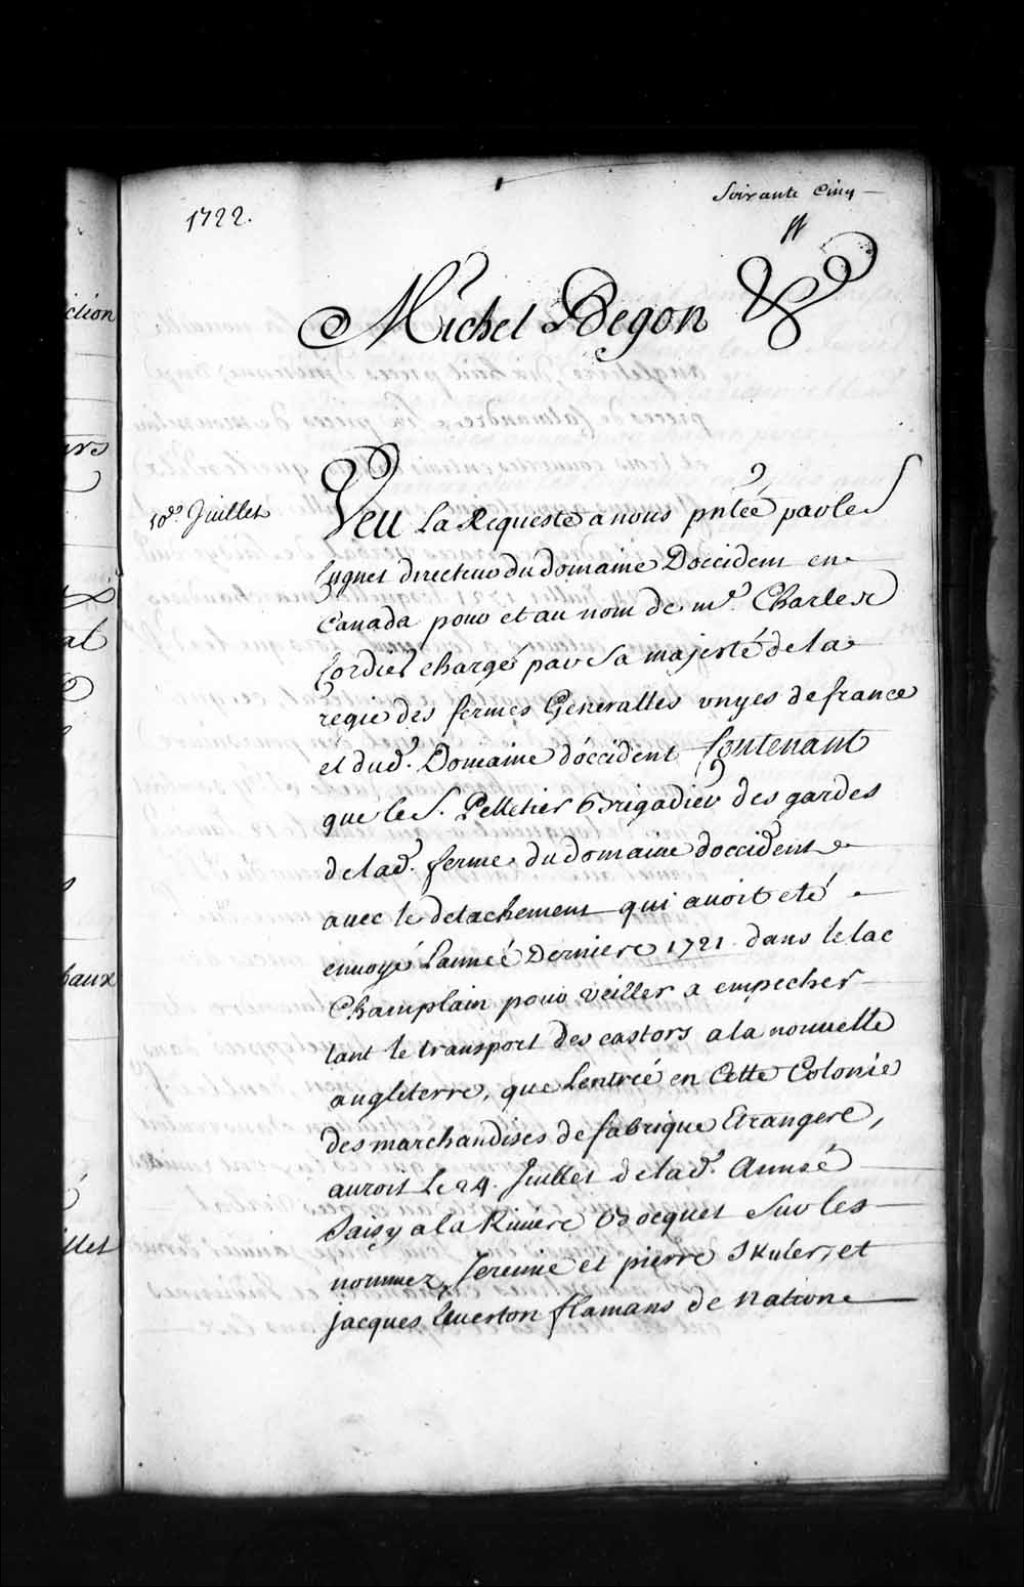 1722.
Soixante Cinq
Michel Begon
10e. Juillet
Veu La Requeste a nous pntéé par le S
Cugnet directeur du domaine Doccident en
Canada pour et au nom de me. Charles
Cordier chargé par Sa majesté de la
regie des fermes Generalles unyes de france
et dud. Domaine d'occident Contenant
que le S. Pelletier brigadier des gardes
de lad. ferme du domaine doccident
avec le detachement qui avoit eté
envoyé Lanneé Derniere 1721. dans le lac
Champlain pour veiller a empecher
tant le transport des castors a la nouvelle
angleterre, que Lentreé en Cette Colonie
des marchandises de fabrique Etrangere,
auroit Le 24. Juillet de lad. Anneé
Saisy a la Riviere Sur les
nommez, Jeremie et pierre Skuler, et
jacques flamans de nation
ction
urs
al
baux
llet